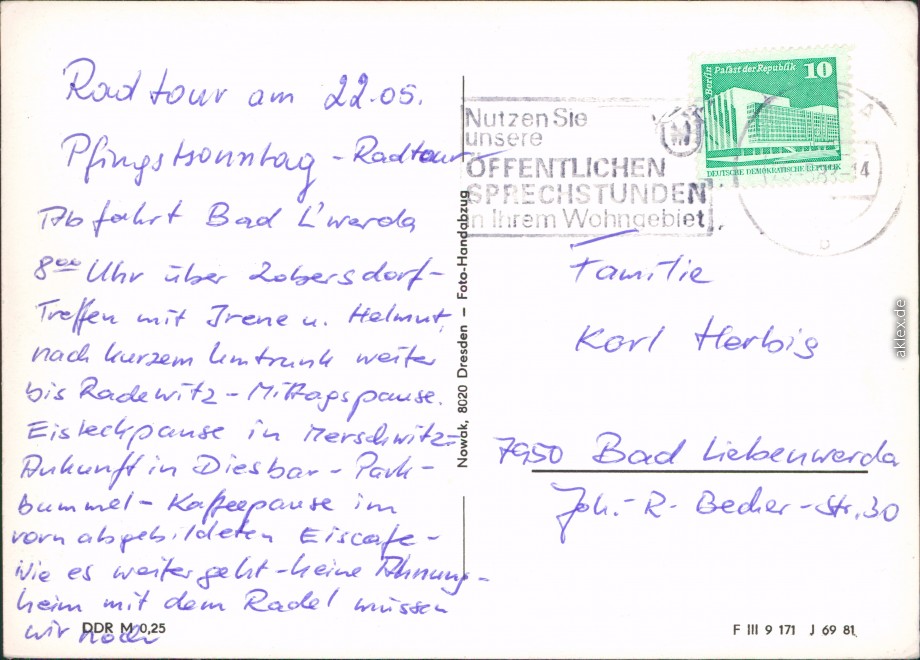 Radtour am 22.05.
Pfingstsonntag - Radtour -
Abfahrt Bad L'werda
8ºº Uhr über Zobersdorf-
Treffen mit Irene u. Helmut,
nach kurzem Umtrunk weiter
bis Radewitz - Mittagspause.
Eisleckpause in Merschwitz-
Ankunft in Diesbar - Park-
bummel - Kaffeepause im
vorn abgebildeten Eiscafe -
Wie es weitergeht - keine Ahnung -
heim mit dem Radel müssen
wir noch
DDR M 0,25
Nowak, 8020 Dresden – Foto-Handabzug
Nutzen Sie
unsere
ÖFFENTLICHEN
SPRECHSTUNDEN
in Ihrem Wohngebiet
Berlin
Palast der Republik 10
DEUTSCHE DEMOKRATISCHE REPUBLIK
Familie
Karl Herbig
7950 Bad Liebenwerda
Joh.-R.-Becher-Str. 30
F III 9 171 J 69 81
aklex.de